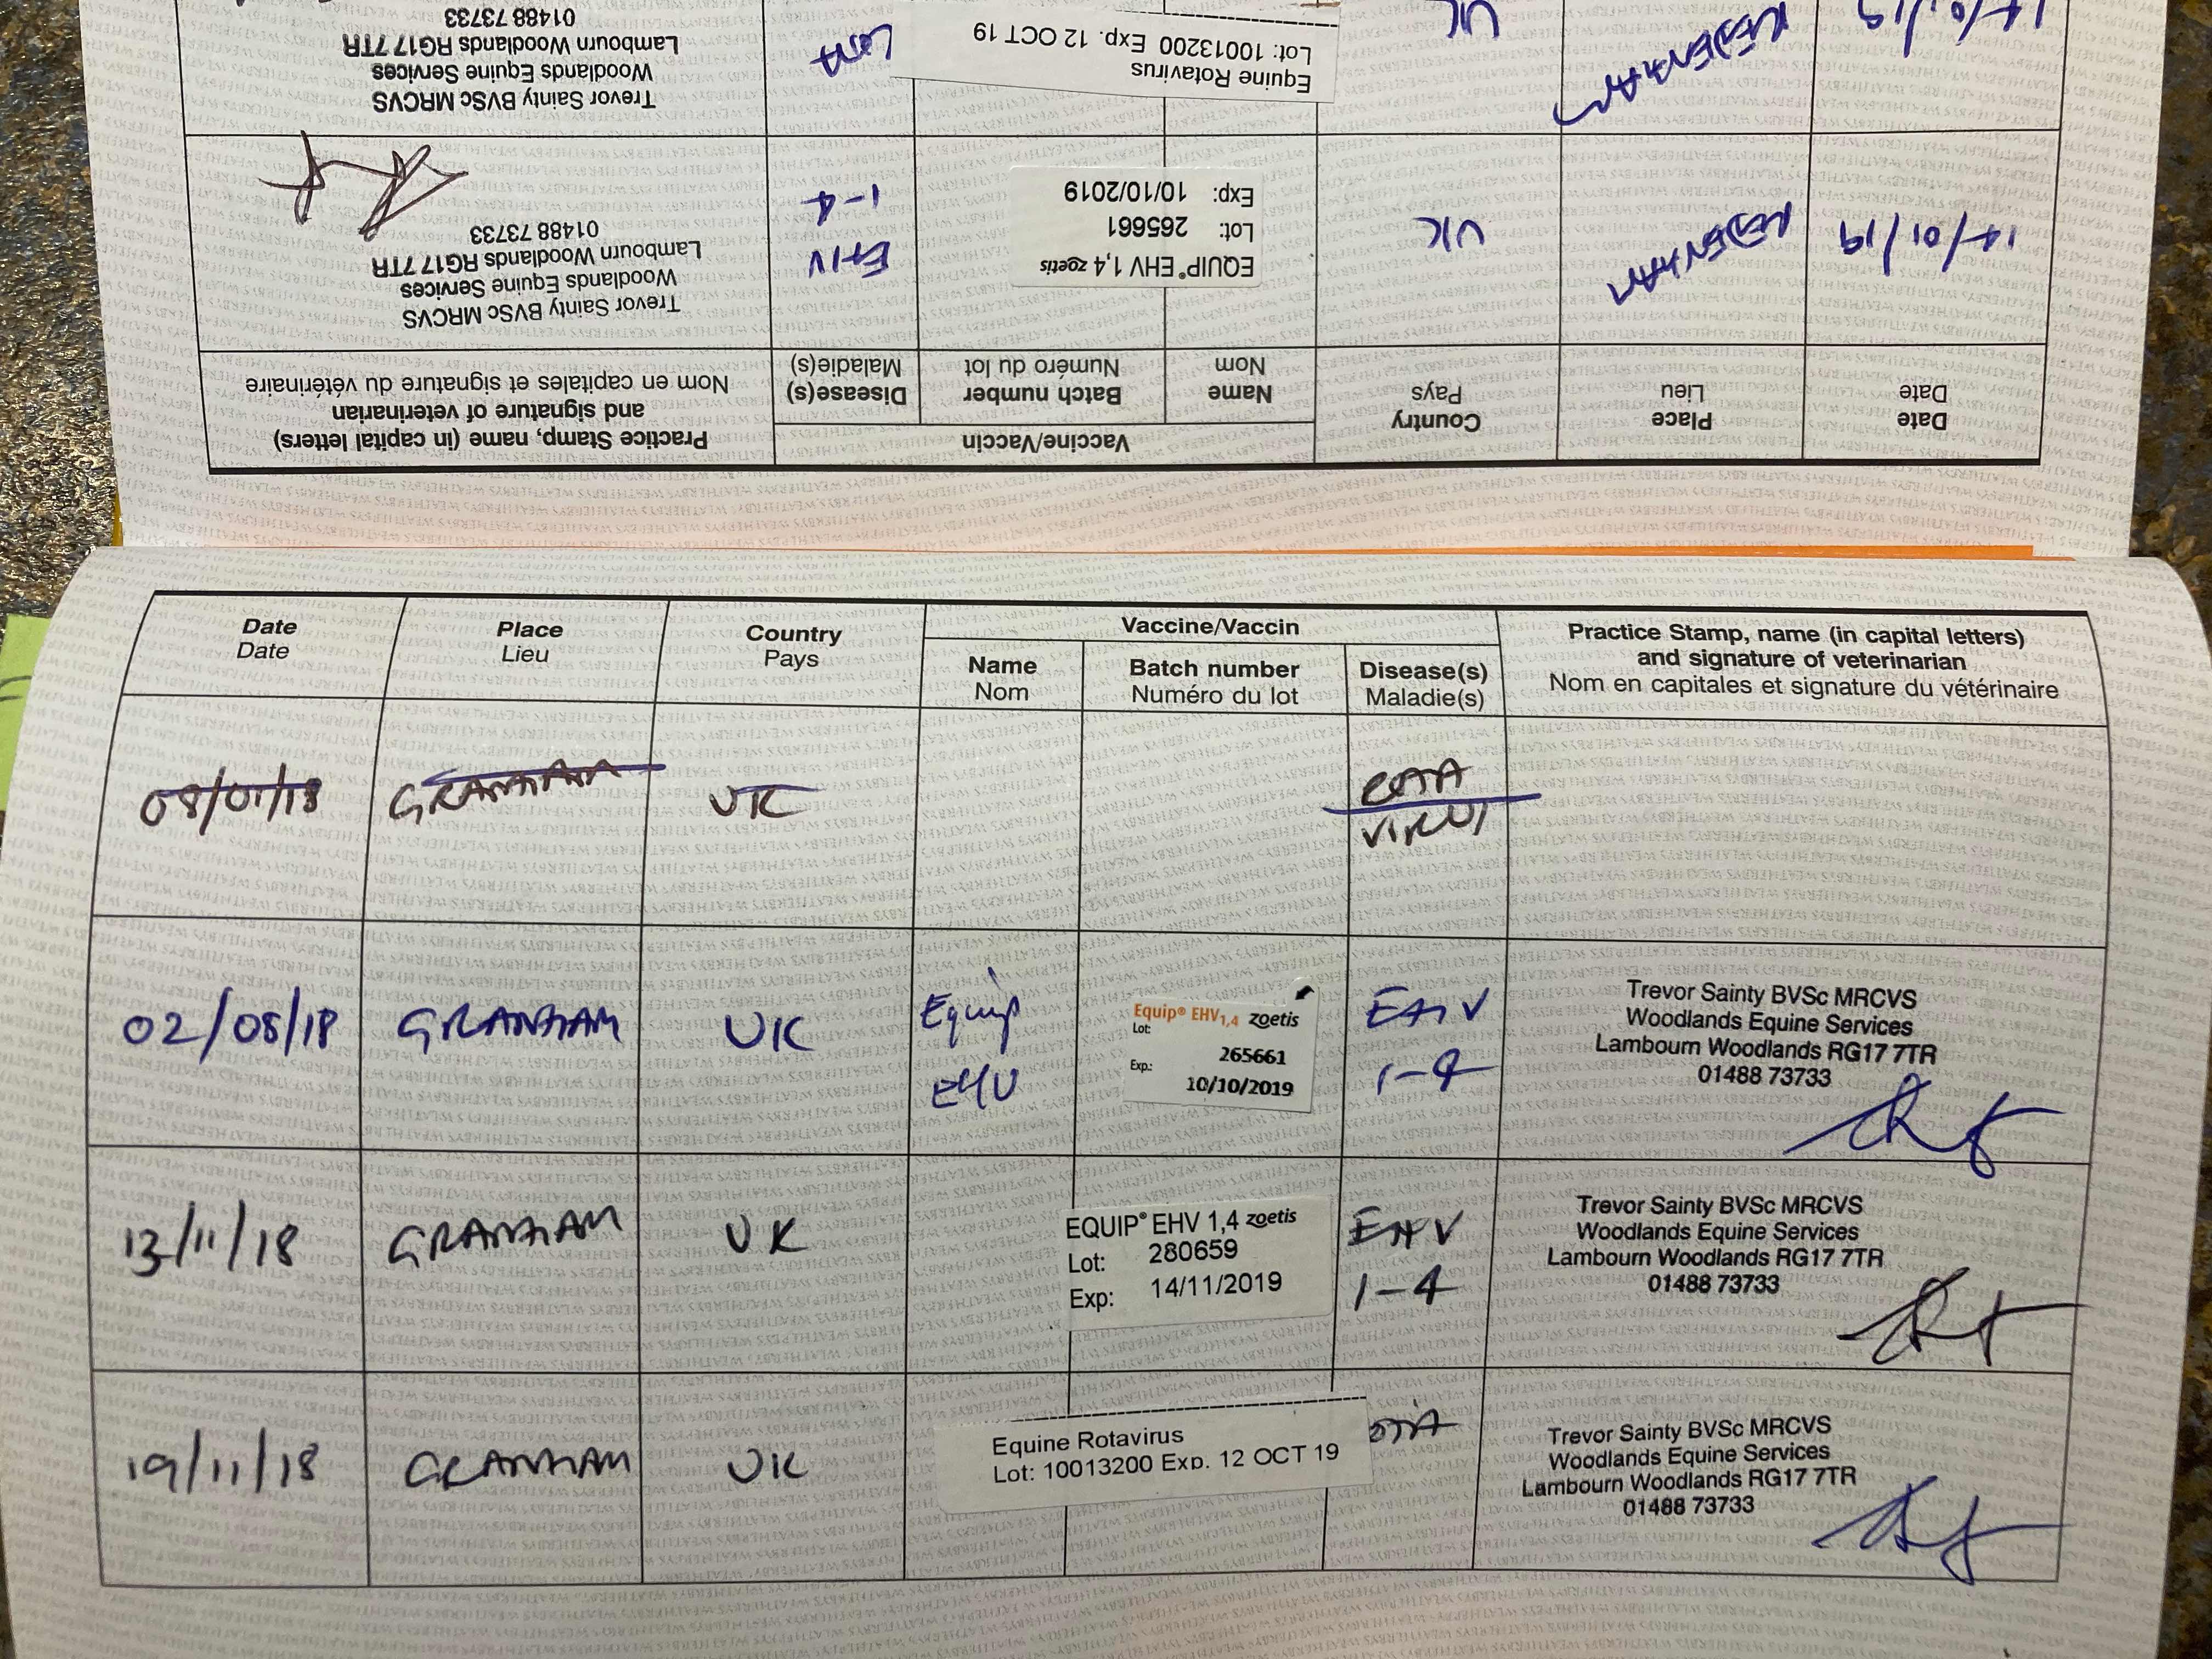 Date
Date
Place
Lieu
Country
Pays
Vaccine/Vaccin
Name
Nom
Batch number
Numéro du lot
Disease(s)
Maladie(s)
Practice Stamp, name (in capital letters)
and signature of veterinarian
Nom en capitales et signature du vétérinaire
14/01/19
UK
EQUIP® EHV 1,4 zoetis
Lot: 265661
Exp: 10/10/2019
EHV
1-4
Trevor Sainty BVSc MRCVS
Woodlands Equine Services
Lambourn Woodlands RG17 7TR
01488 73733
UK
Equine Rotavirus
Lot: 10013200 Exp. 12 OCT 19
Trevor Sainty BVSc MRCVS
Woodlands Equine Services
Lambourn Woodlands RG17 7TR
01488 73733
Date
Date
Place
Lieu
Country
Pays
Vaccine/Vaccin
Name
Nom
Batch number
Numéro du lot
Disease(s)
Maladie(s)
Practice Stamp, name (in capital letters)
and signature of veterinarian
Nom en capitales et signature du vétérinaire
08/01/18
GRANHAM
UK
VIRUS
02/08/18
GRANHAM
UK
Equip
EHV
Equip® EHV1,4 zoetis
Lot:
265661
Exp.:
10/10/2019
EHV
1-4
Trevor Sainty BVSc MRCVS
Woodlands Equine Services
Lambourn Woodlands RG17 7TR
01488 73733
13/11/18
GRANHAM
UK
EQUIP® EHV 1,4 zoetis
Lot: 280659
Exp: 14/11/2019
EHV
1-4
Trevor Sainty BVSc MRCVS
Woodlands Equine Services
Lambourn Woodlands RG17 7TR
01488 73733
19/11/18
GRANHAM
UK
Equine Rotavirus
Lot: 10013200 Exp. 12 OCT 19
Trevor Sainty BVSc MRCVS
Woodlands Equine Services
Lambourn Woodlands RG17 7TR
01488 73733